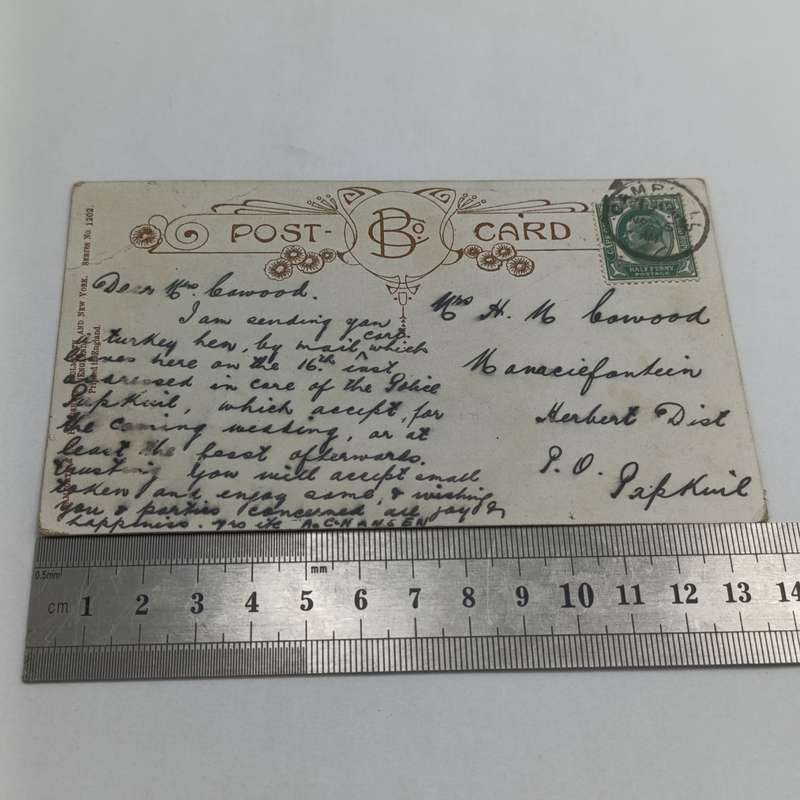 POST-
B Co.
CARD
CAMPBELL
HALFPENNY
POSTAGE
SERIES No. 1202.
AND NEW YORK.
Printed in England.
Dear Mrs Cawood.
I am sending you
turkey hen, by mail cart which
leaves here on the 16th inst
addressed in care of the Police
Papkuil, which accept, for
the coming wedding, or at
least the feast afterwards.
Trusting you will accept small
token and enjoy same, & wishing
you & parties concerned all joy &
happiness. yrs etc A.C. HANSEN
Mrs H. M Cawood
Manaciefontein
Herbert Dist
P. O. Papkuil
0.5mm
mm
cm 1 2 3 4 5 6 7 8 9 10 11 12 13 14